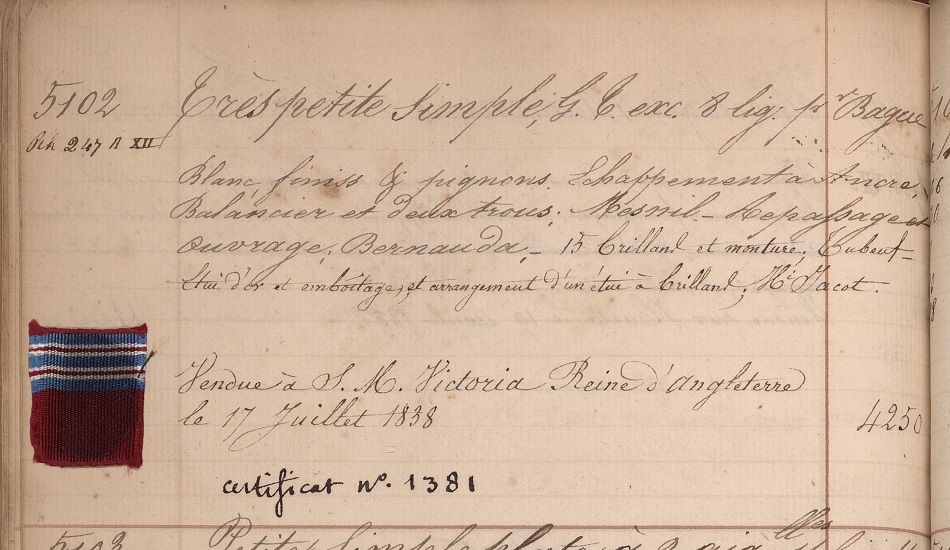 5102 Très petite Simple, G. E. exc. 8 lig: pr Bague
247 A XII
Blanc, finiss & pignons. Echappement à Ancre,
Balancier et deux trous; Mesnil_ Repassage et
ouvrage; Bernauda,_ 15 brilland et monture, Tubeuf_
Etui d'or et emboîtage, et arrangement d'un étui à brilland; Mi Jacot.
Vendue à S. M. Victoria Reine d'Angleterre
le 17 Juillet 1838 4250
certificat no. 1381
5103 Petite Simple plate à